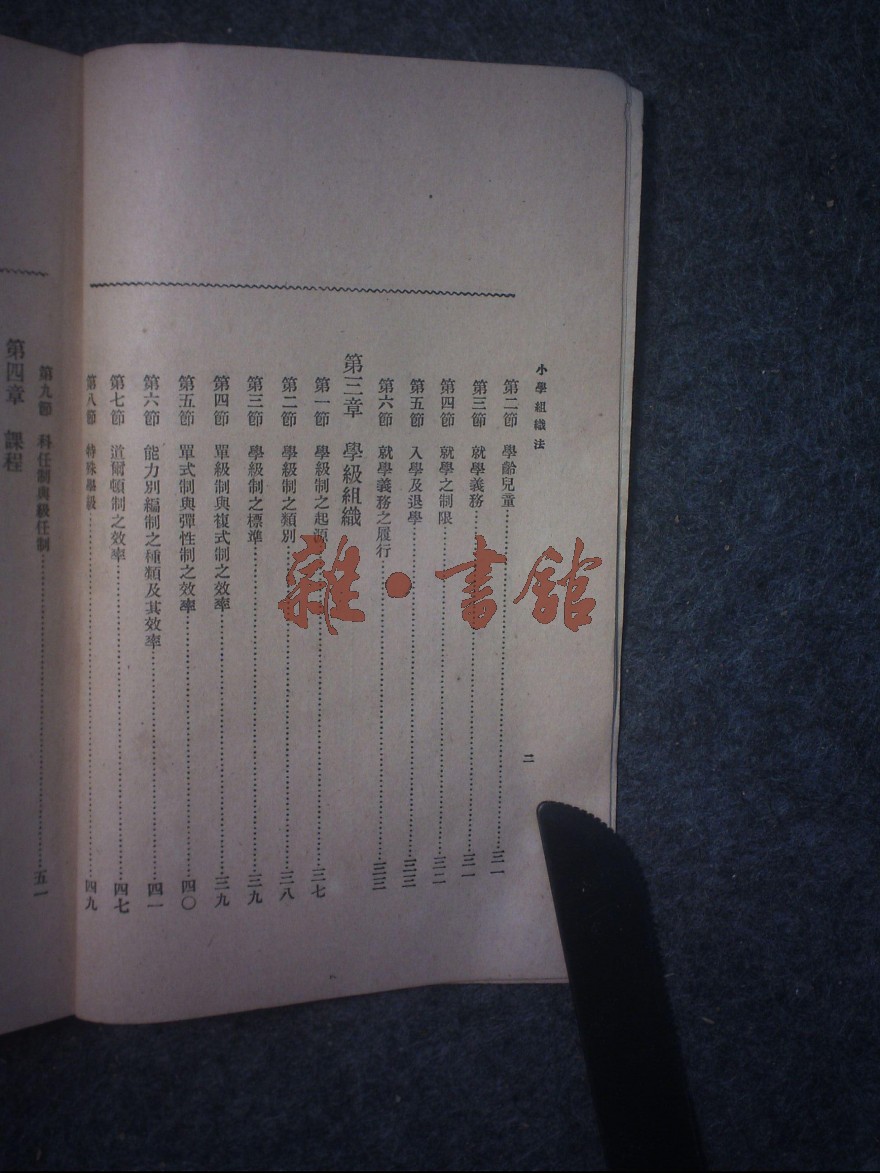 小學組織法
二
第二節 學齡兒童……三一
第三節 就學義務……三一
第四節 就學之制限……三二
第五節 入學及退學……三三
第六節 就學義務之履行……三三
第三章 學級組織
第一節 學級制之起源……三七
第二節 學級制之類別……三八
第三節 學級制之標準……三九
第四節 單級制與複式制之效率……三九
第五節 單式制與彈性制之效率……四〇
第六節 能力別編制之種類及其效率……四一
第七節 道爾頓制之效率……四七
第八節 特殊學級……四九
第九節 科任制與級任制……五一
第四章 課程
雜·書館